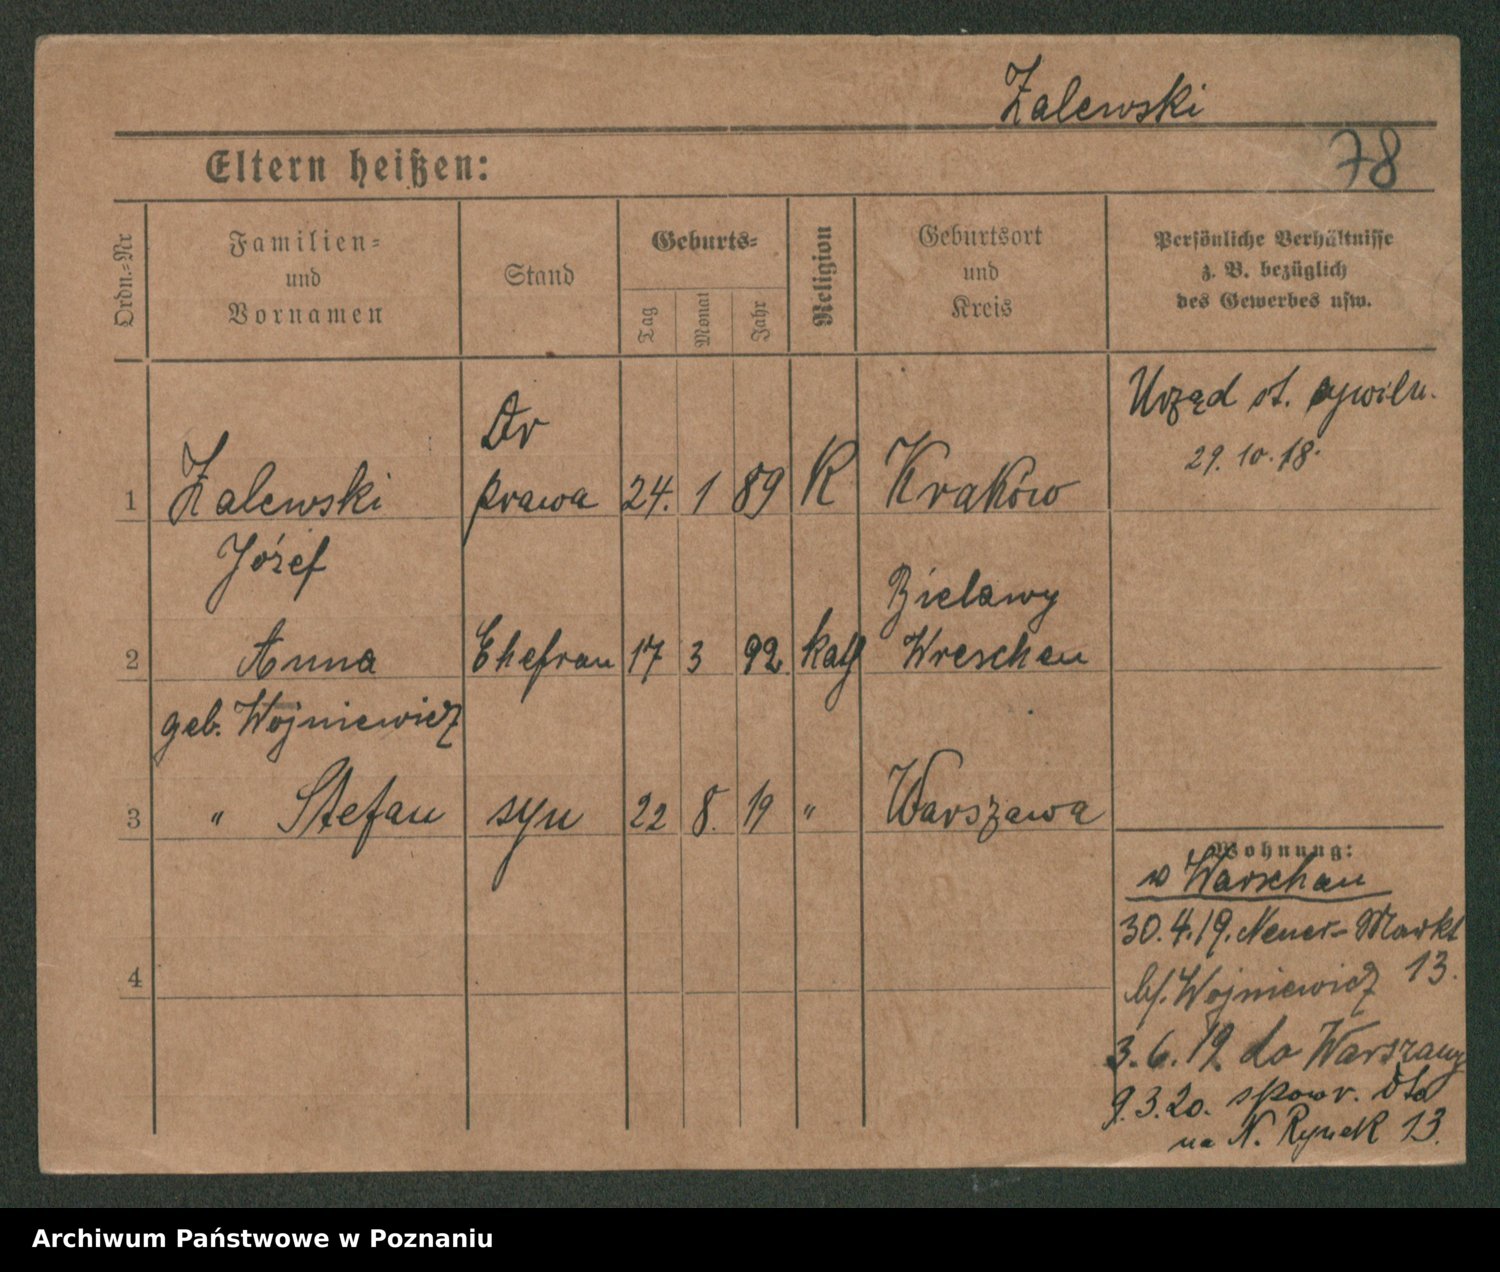 Zalewski
78
Eltern heißen:
Ordn.-Nr
Familien-
und
Vornamen
Stand
Geburts-
Tag
Monat
Jahr
Religion
Geburtsort
und
Kreis
Persönliche Verhältnisse
z. B. bezüglich
des Gewerbes usw.
Urząd st. cywiln.
29. 10. 18.
Dr
1 Zalewski prawa 24. 1 89 K Kraków
Józef
Bielawy
2 Anna Ehefrau 17 3 92 kath Wreschen
geb. Wojniewicz
3 " Stefan syn 22 8. 19 " Warszawa
Wohnung:
w Warschau
30. 4. 19. Neuer-Markt
b/. Wojniewicz 13.
4
3. 6. 19. do Warszawy
9. 3. 20. spowr.
na N. Rynek 13.
Archiwum Państwowe w Poznaniu